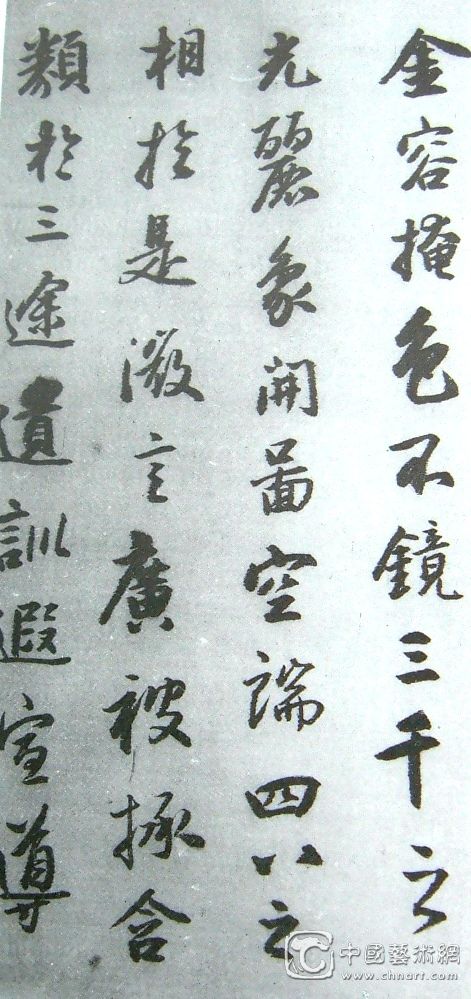 金容掩色不鏡三千之
光麗象開啚空端四八之
相於是微言廣被拯含
類於三途遺訓遐宣導
中國藝術網
www.chnart.com